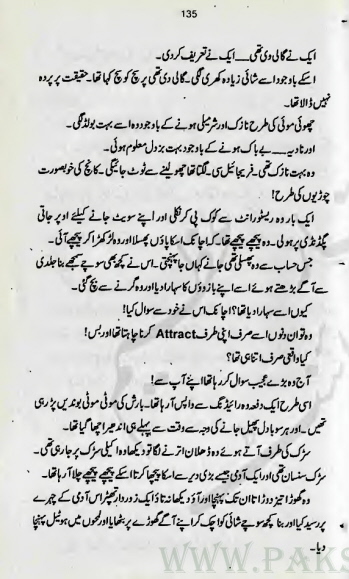 135
ایک نے گالی دی تھی ـــــ ایک نے تعریف کر دی۔
اسکے باوجود اسے شائی زیادہ کھری لگی۔ گالی دی تھی پر سچ کو سچ کہا تھا۔ حقیقت پر پردہ
نہیں ڈالا تھا۔
چھوئی موئی کی طرح نازک اور شرمیلی ہونے کے باوجود وہ اسے بہت بولڈ لگی۔
اور نادیہ ـــــ بے باک ہونے کے باوجود بہت بزدل معلوم ہوئی۔
وہ بہت نازک تھی۔ فریجائیل سی۔ لگتا تھا چھو لینے سے ٹوٹ جائیگی۔ کانچ کی خوبصورت
چوڑیوں کی طرح!
ایک بار وہ ریسٹورانٹ سے کوک پی کر نکلی اور اپنے سویٹ جانے کیلئے اوپر جاتی
پگڈنڈی پر ہولی۔ وہ پیچھے پیچھے تھا۔ کہ اچانک اسکا پاؤں پھسلا اور وہ لڑکھڑا کر پیچھے آئی۔
جس حساب سے وہ پھسلی تھی جانے کہاں جا پہنچتی۔ اس نے کچھ بھی سوچے سمجھے بنا جلدی
سے آگے بڑھتے ہوئے اسے اپنے بازوؤں کا سہارا دیا تھا اور وہ گرنے سے بچ گئی۔
کیوں اسے سہارا دیا تھا؟ اچانک اس نے خود سے سوال کیا!
وہ تو ان دنوں اسے صرف اپنی طرف Attract کرنا چاہتا تھا اور بس!
کیا واقعی صرف اتنا ہی تھا؟
آج وہ بڑے عجیب سوال کر رہا تھا اپنے آپ سے!
اسی طرح ایک دفعہ وہ رائیڈنگ سے واپس آ رہا تھا۔ بارش کی موٹی موٹی بوندیں پڑ رہی
تھیں۔ اور ہر سو بادل پھیل جانے کی وجہ سے وقت سے پہلے ہی اندھیرا چھا گیا تھا۔
سڑک کی طرف آتے ہوئے وہ ڈھلان اترنے لگا تو دیکھا وہ اکیلی سڑک پر جا رہی تھی۔
سڑک سنسان تھی اور ایک آدمی جیسے بڑی دیر سے اسکا پیچھا کرتا اسکے پیچھے پیچھے چلا آ رہا تھا۔
وہ گھوڑا تیز دوڑاتا ان تک پہنچا اور آؤ دیکھا نہ تاؤ ایک زوردار تھپڑ اس آدمی کے چہرے
پر رسید کیا اور بنا کچھ سوچے شائی کو اچک کر اپنے آگے گھوڑے پر بٹھایا اور لمحوں میں ہوٹیل پہنچا
دیا۔
WWW.PAKS